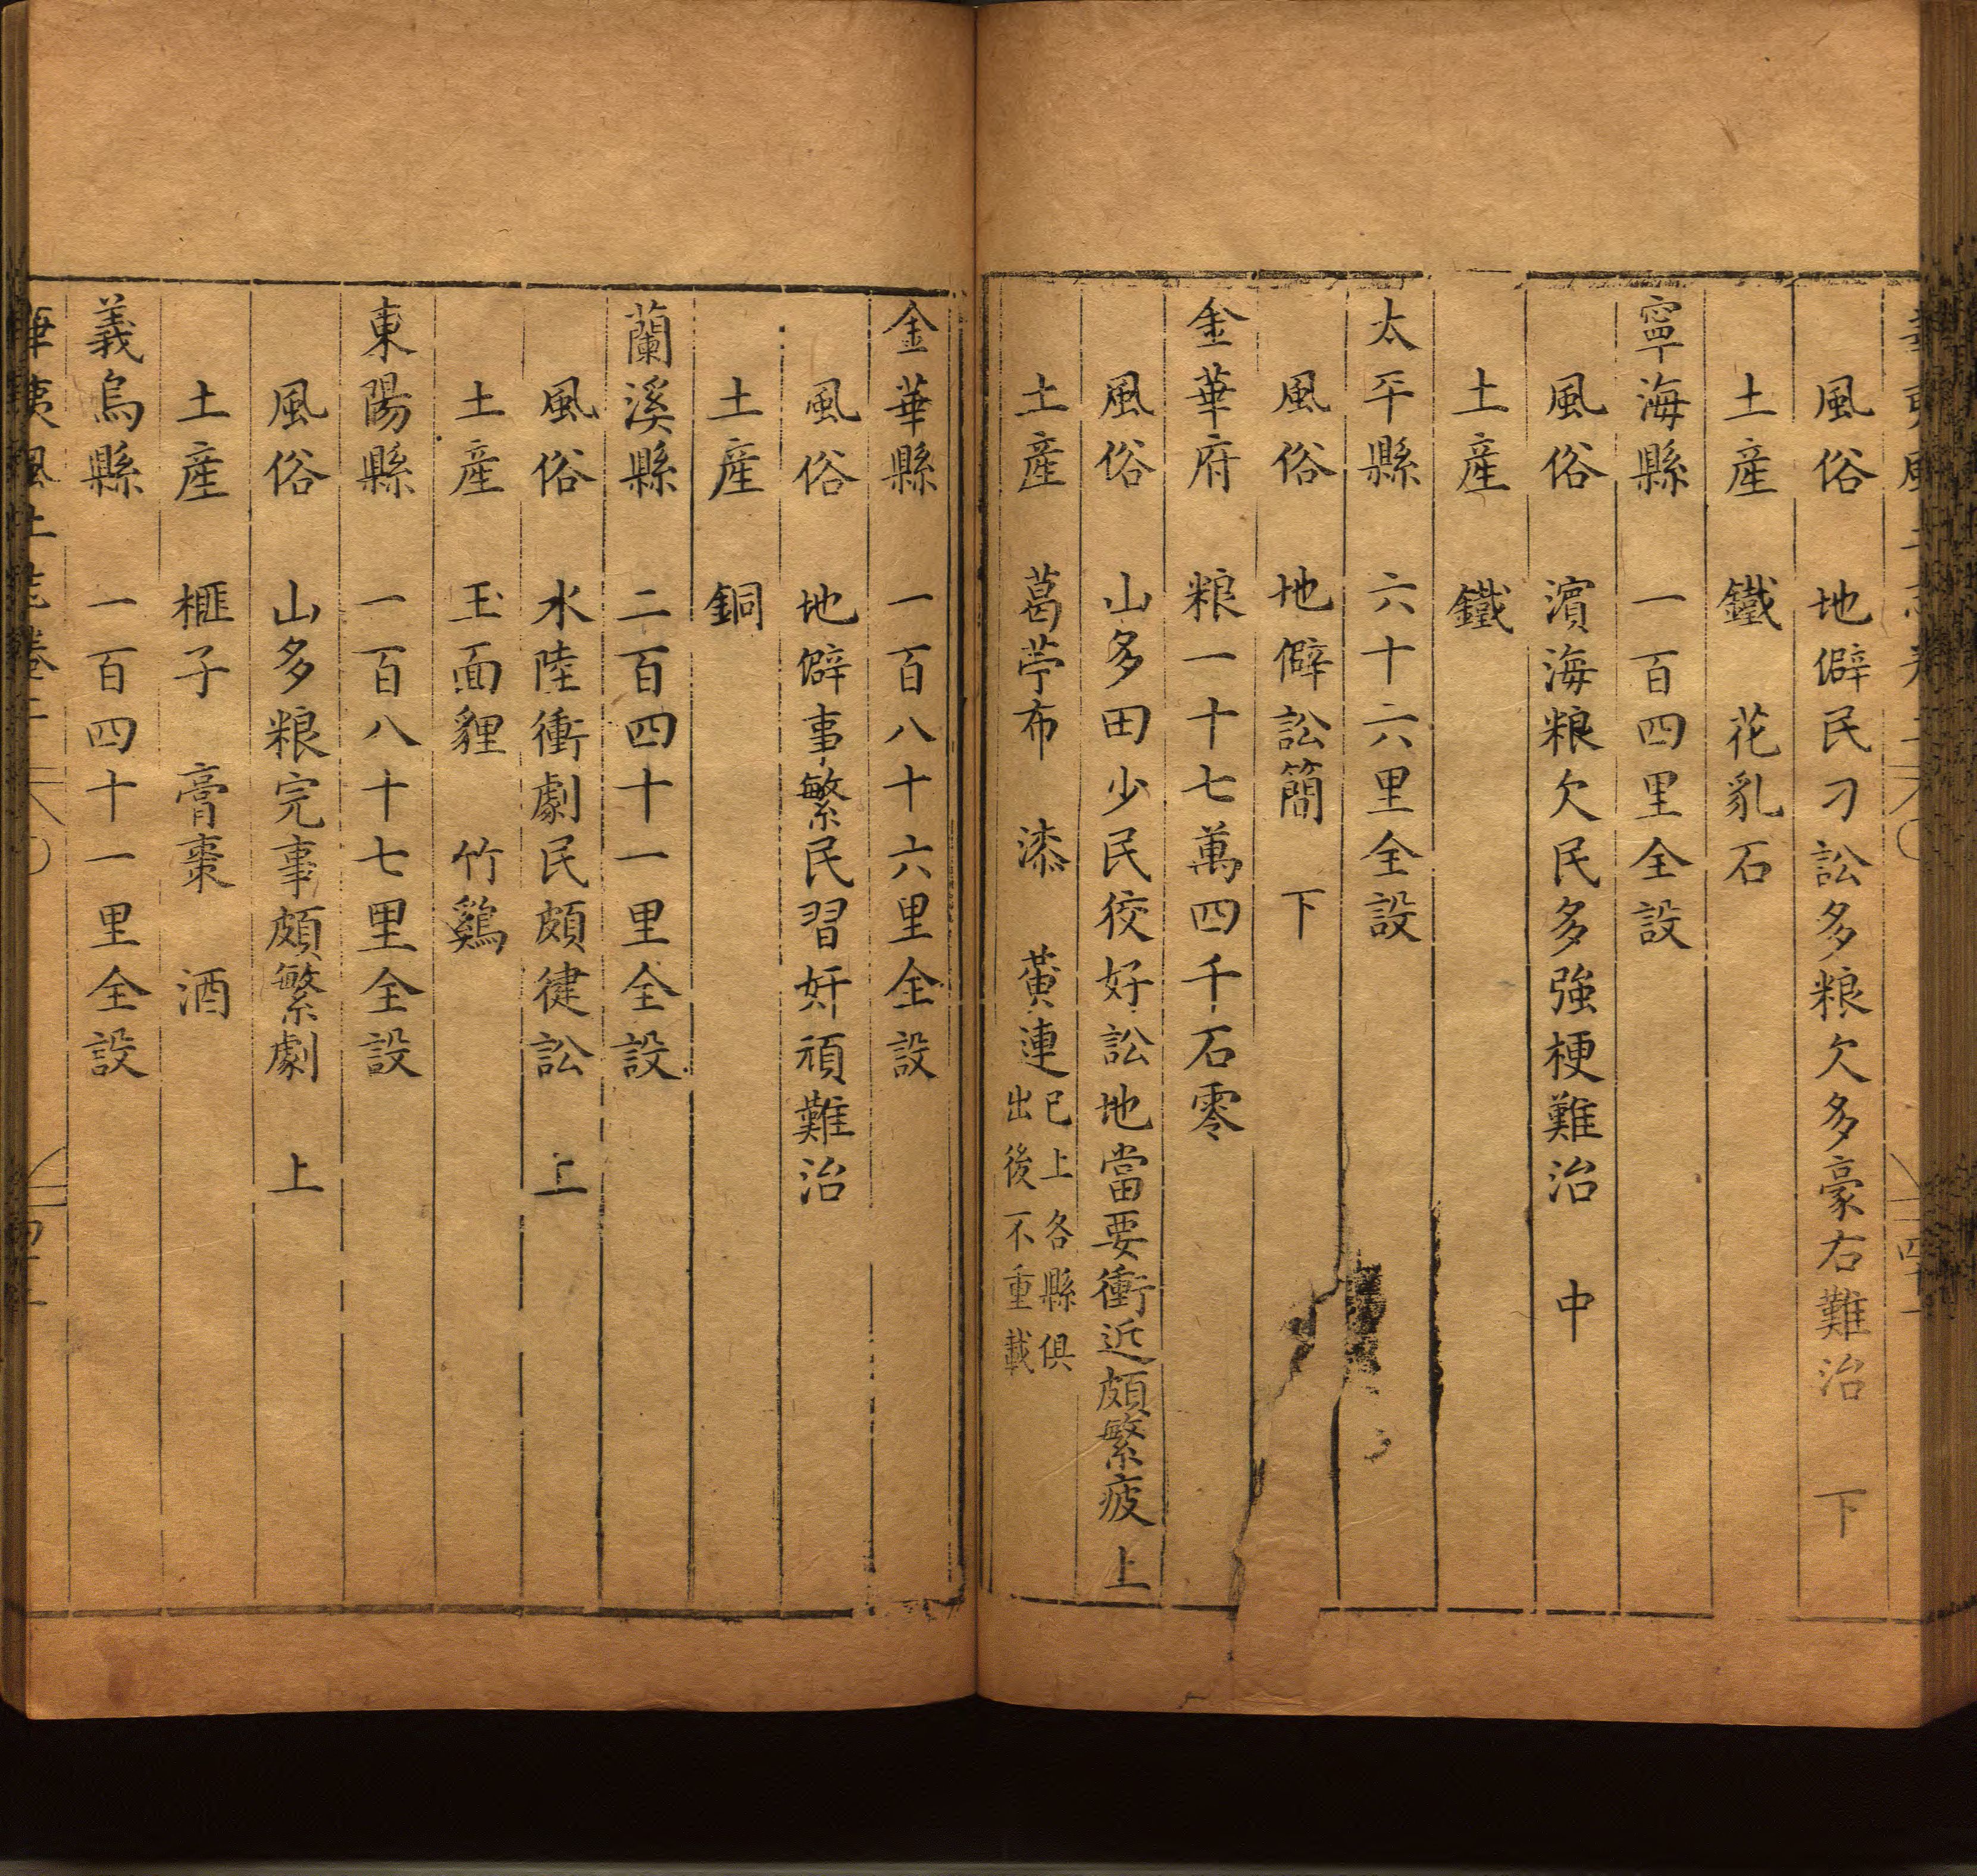 風俗 地僻民刁訟多粮欠多豪右難治 下
土產 鐵 花乳石
寧海縣 一百四里全設
風俗 濱海粮欠民多強梗難治 中
土產 鐵
太平縣 六十六里全設
風俗 地僻訟簡 下
金華府 粮一十七萬四千石零
風俗 山多田少民狡好訟地當要衝近頗繁疲 上
土產 葛苧布 漆 黃連 已上各縣俱
出後不重載
金華縣 一百八十六里全設
風俗 地僻事繁民習奸頑難治
土產 銅
蘭溪縣 二百四十一里全設
風俗 水陸衝劇民頗健訟 上
土產 玉面貍 竹鷄
東陽縣 一百八十七里全設
風俗 山多粮完事頗繁劇 上
土產 榧子 膏棗 酒
義烏縣 一百四十一里全設